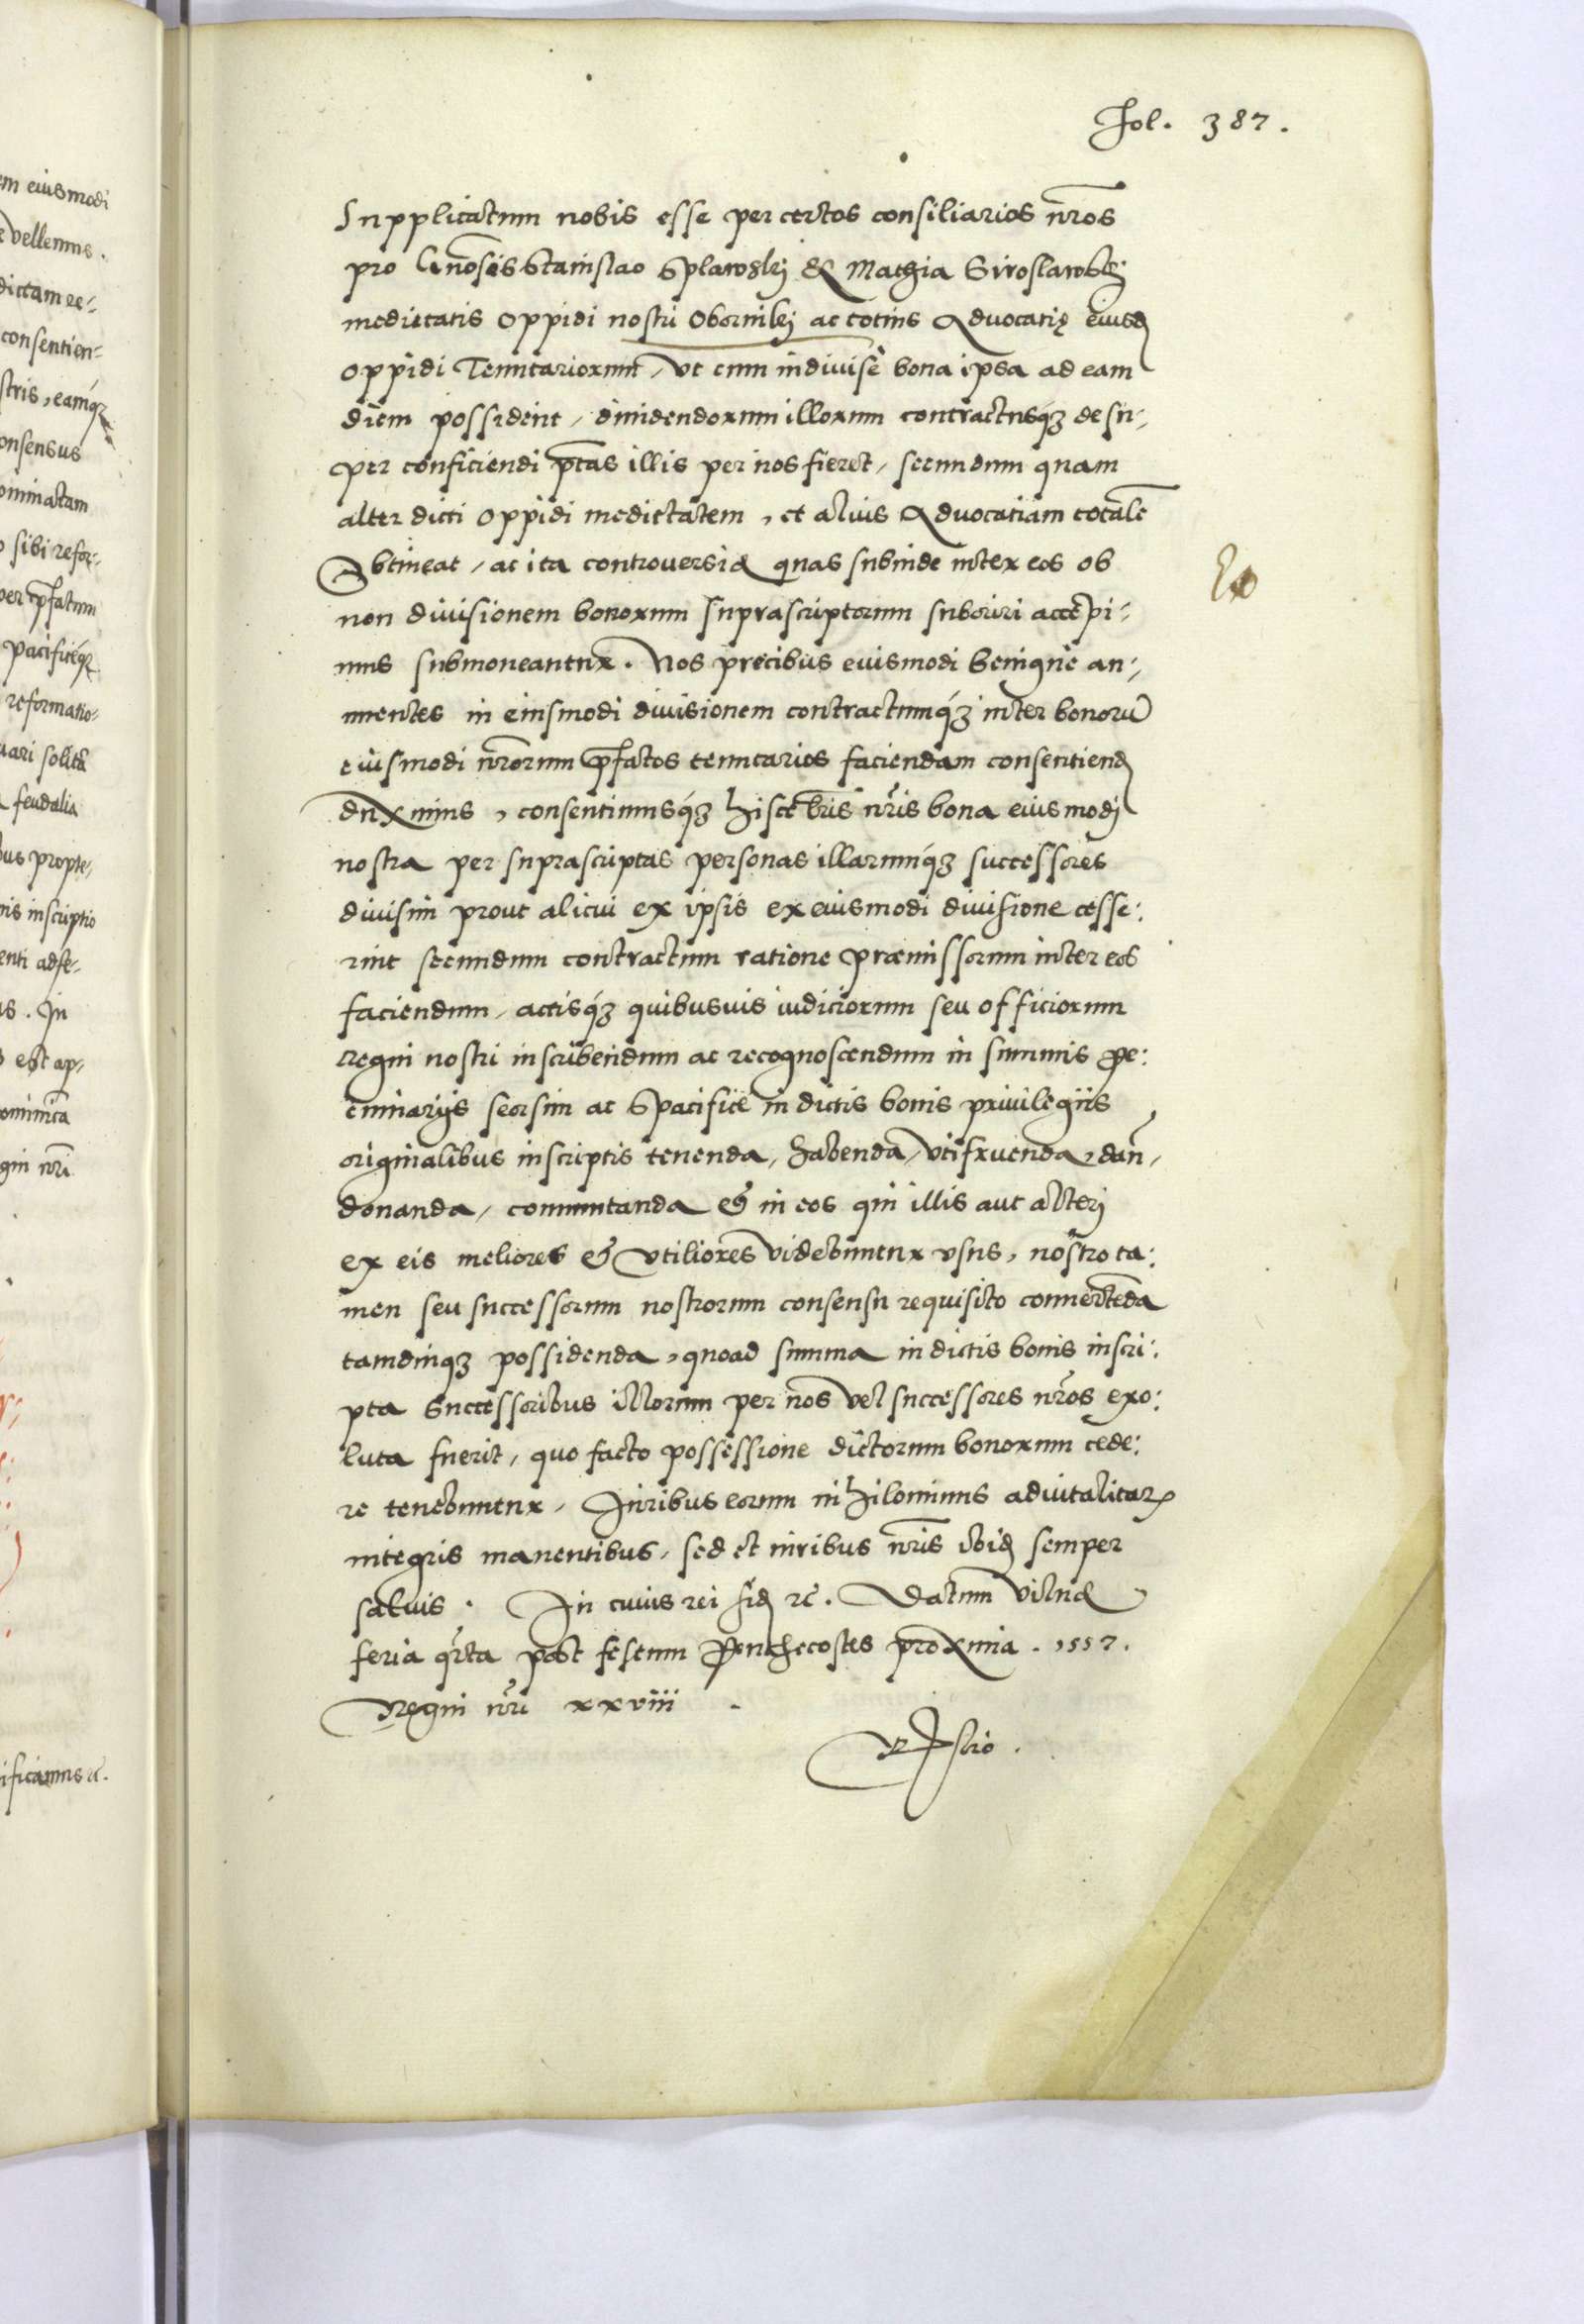 Fol. 387.
Supplicatum nobis esse per certos consiliarios nr̄os
pro Gn̄osis Stanislao Splawski & Mathia Siroslawski
medietatis oppidi nostri Oborniki ac totius Advocatię eiusd
oppidi Tenutariorum, vt cum indiuisè bona ipsa ad eam
diem possident, diuidendorum illorum contractusq́ʒ desu-
per conficiendi ptās illis per nos fieret, secundum quam
alter dicti oppidi medietatem, et alius Advocatiam totalē
Obtineat, ac ita controuersiæ quas subinde inter eos ob
non diuisionem bonorum suprascriptorum suboriri accepi-
mus submoueantur. Nos precibus eiusmodi benigne an-
nuentes in eiusmodi diuisionem contractumq́ʒ inter bonorū
eiusmodi nr̄orum pfatos tenutarios faciendam consentiend
duximus, consentimusq́ʒ hisce lr̄is nr̄is bona eiusmodi
nostra per suprascriptas personas illarumq́ʒ successores
diuisim prout alicui ex ipsis ex eiusmodi diuisione cesse:
rint secundum contractum ratione præmissorum inter eos
faciendum, actisq́ʒ quibusuis iudiciorum seu officiorum
regni nostri inscribendum ac recognoscendum in summis pe:
cuniarijs seorsim ac spacifice in dictis bonis priuilegiis
originalibus inscriptis tenenda, habenda, vtifruenda, dan̄,
donanda, commutanda & in eos qui illis aut alteri
ex eis meliores & vtiliores videbuntur vsus, nostro ta:
men seu successorum nostrorum consensu requisito conuertēda
tamdiuqʒ possidenda, quoad summa in dictis bonis inscri:
pta Successoribus illorum per nos vel successores nr̄os exo:
luta fuerit, quo facto possessione dictorum bonorum cede:
re tenebuntur, Iuribus eorum nihilominus aduitalitar
integris manentibus, sed et iuribus nr̄is ibid semper
saluis. In cuius rei fid rc̄. Datum Vilnæ
feria qr̄ta post festum Penthecostes proxima. 1557.
Regni nr̄i xxviii